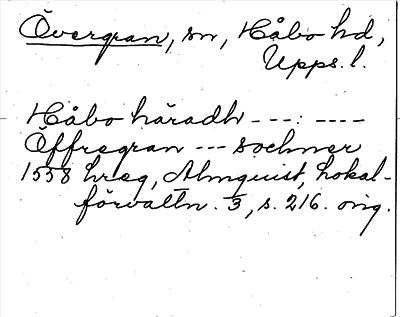 Övergran, sn, Håbo hd,
Upps. l.
Håbo häradh ---: ----
Öffregran --- sochner
1538 hreg, Almquist, Lokal-
förvaltn. 3, s. 216. orig.